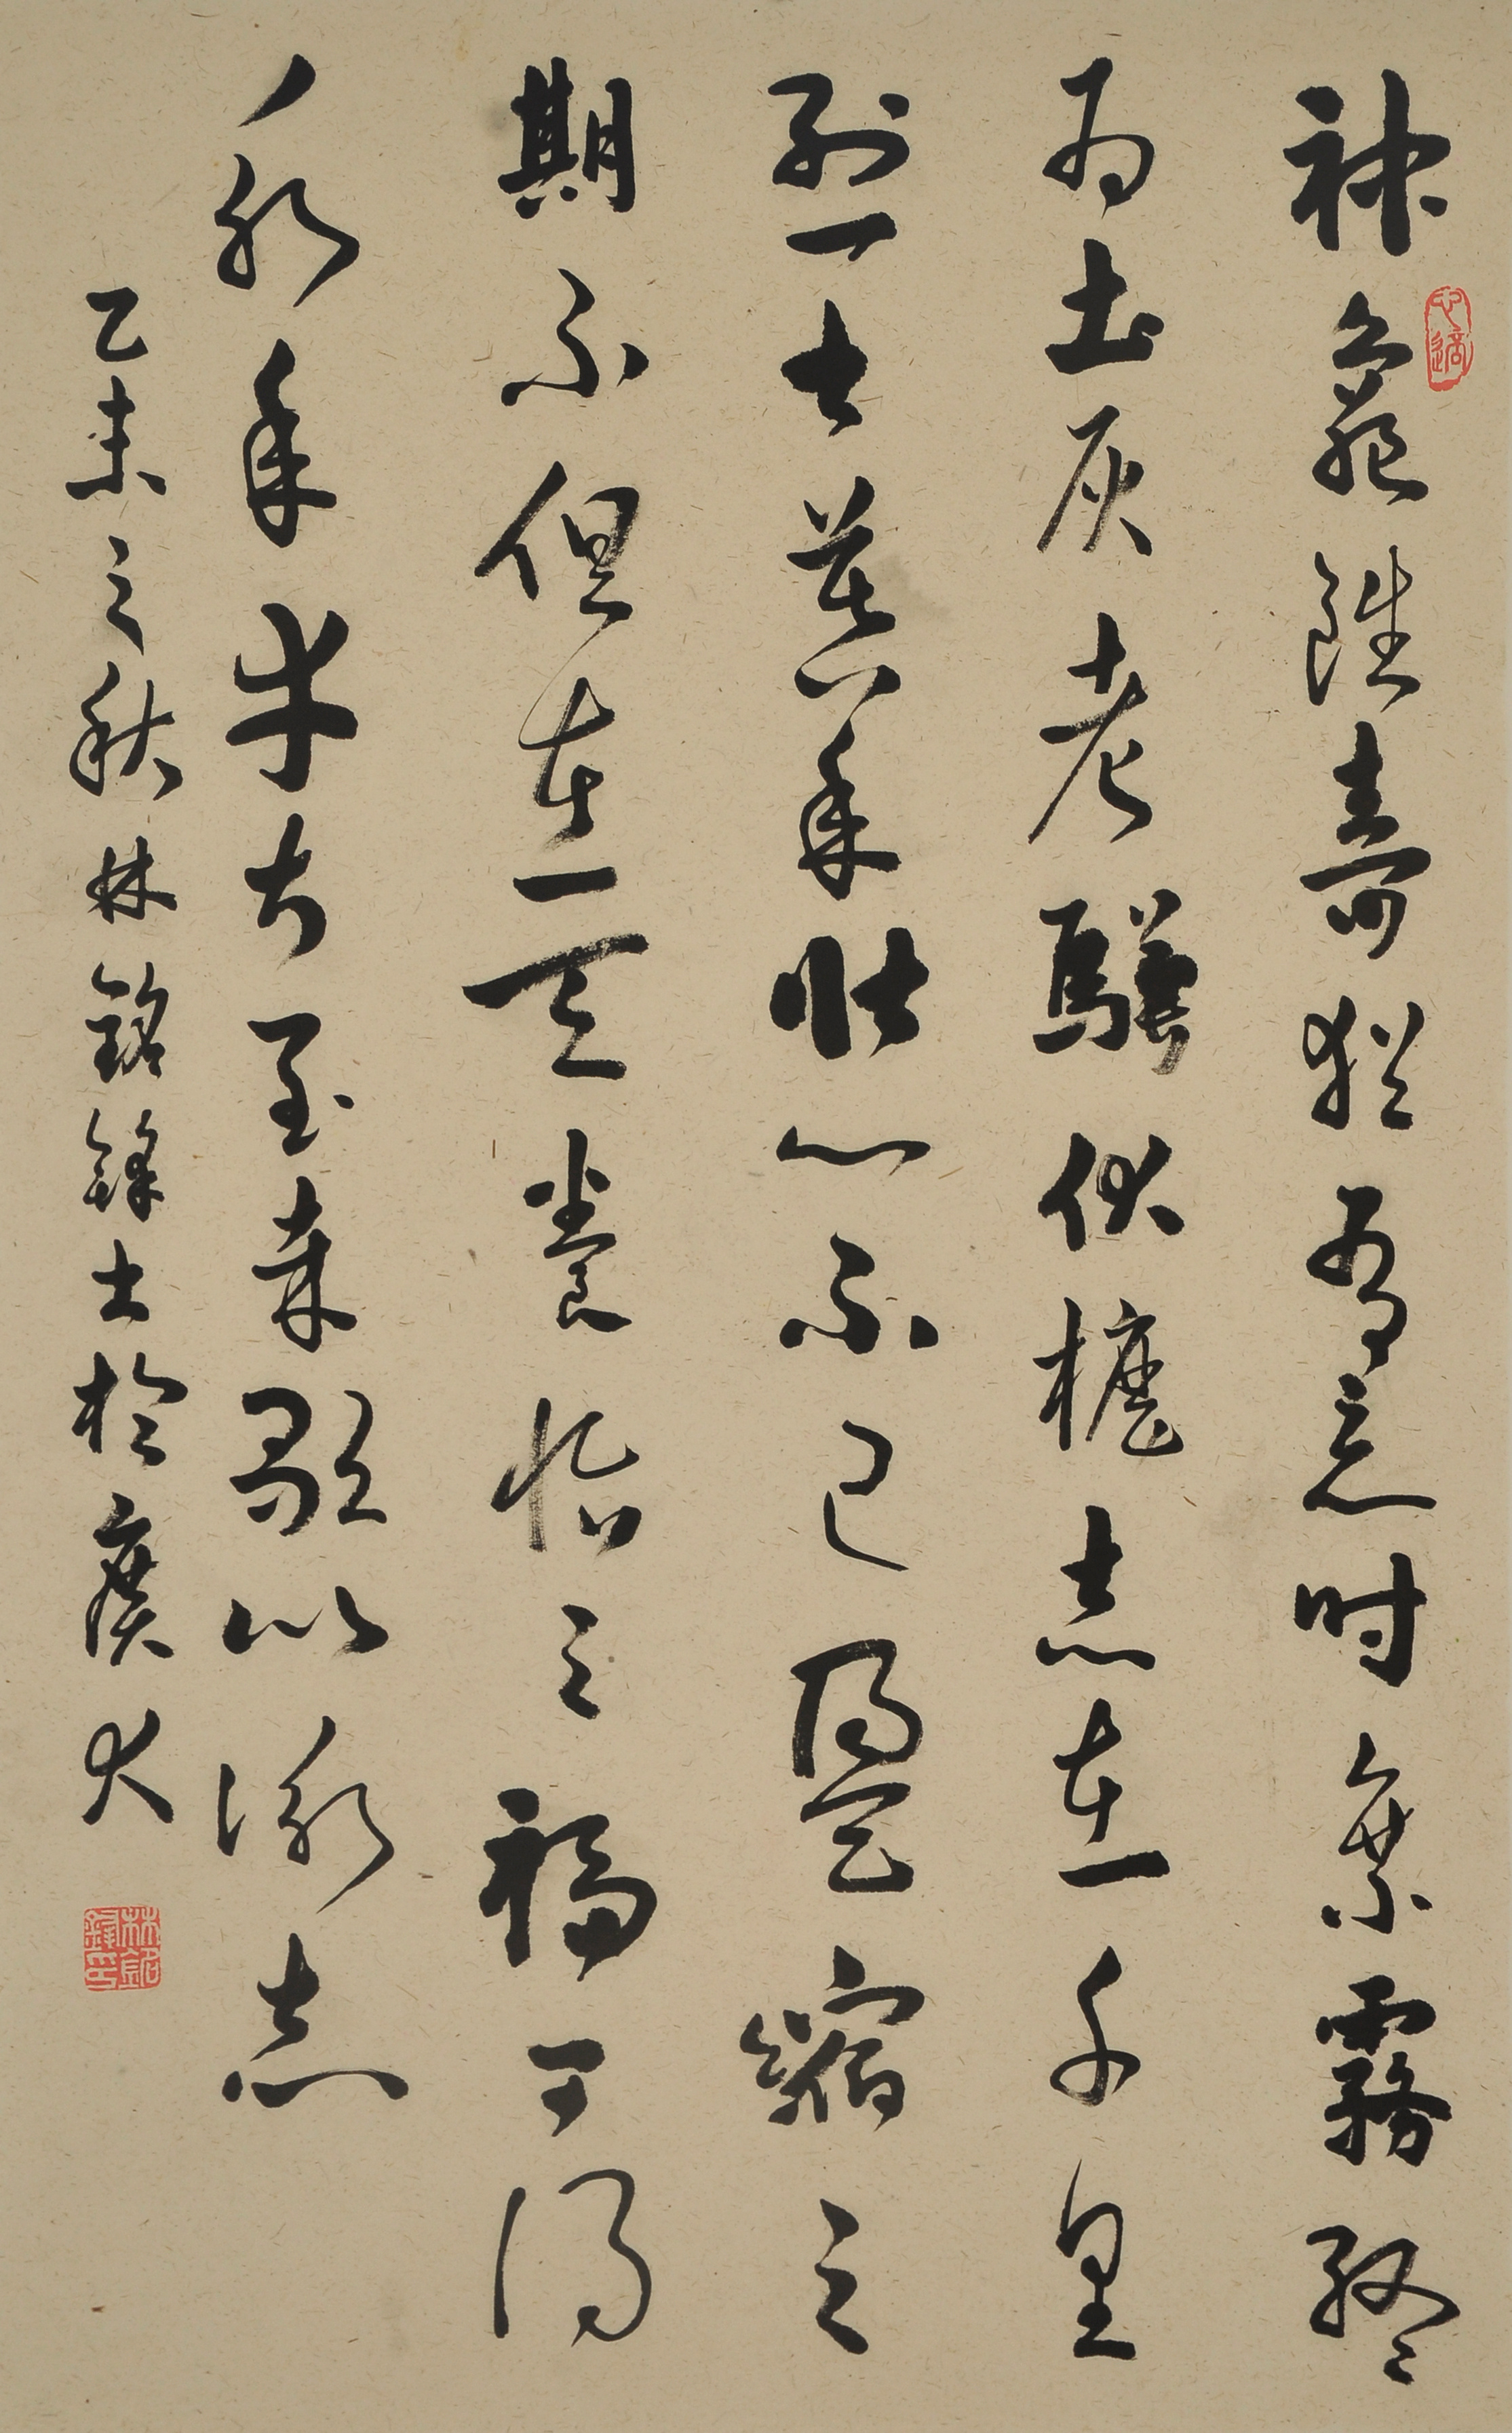 神龜雖壽猶有竟時乘霧終
為土灰老驥伏櫪志在千里
烈士暮年壯心不已盈縮之
期不但在天養怡之福可得
永年幸甚至哉歌以詠志
乙未之秋林銘鋒書於廣大
心適
林銘鋒印